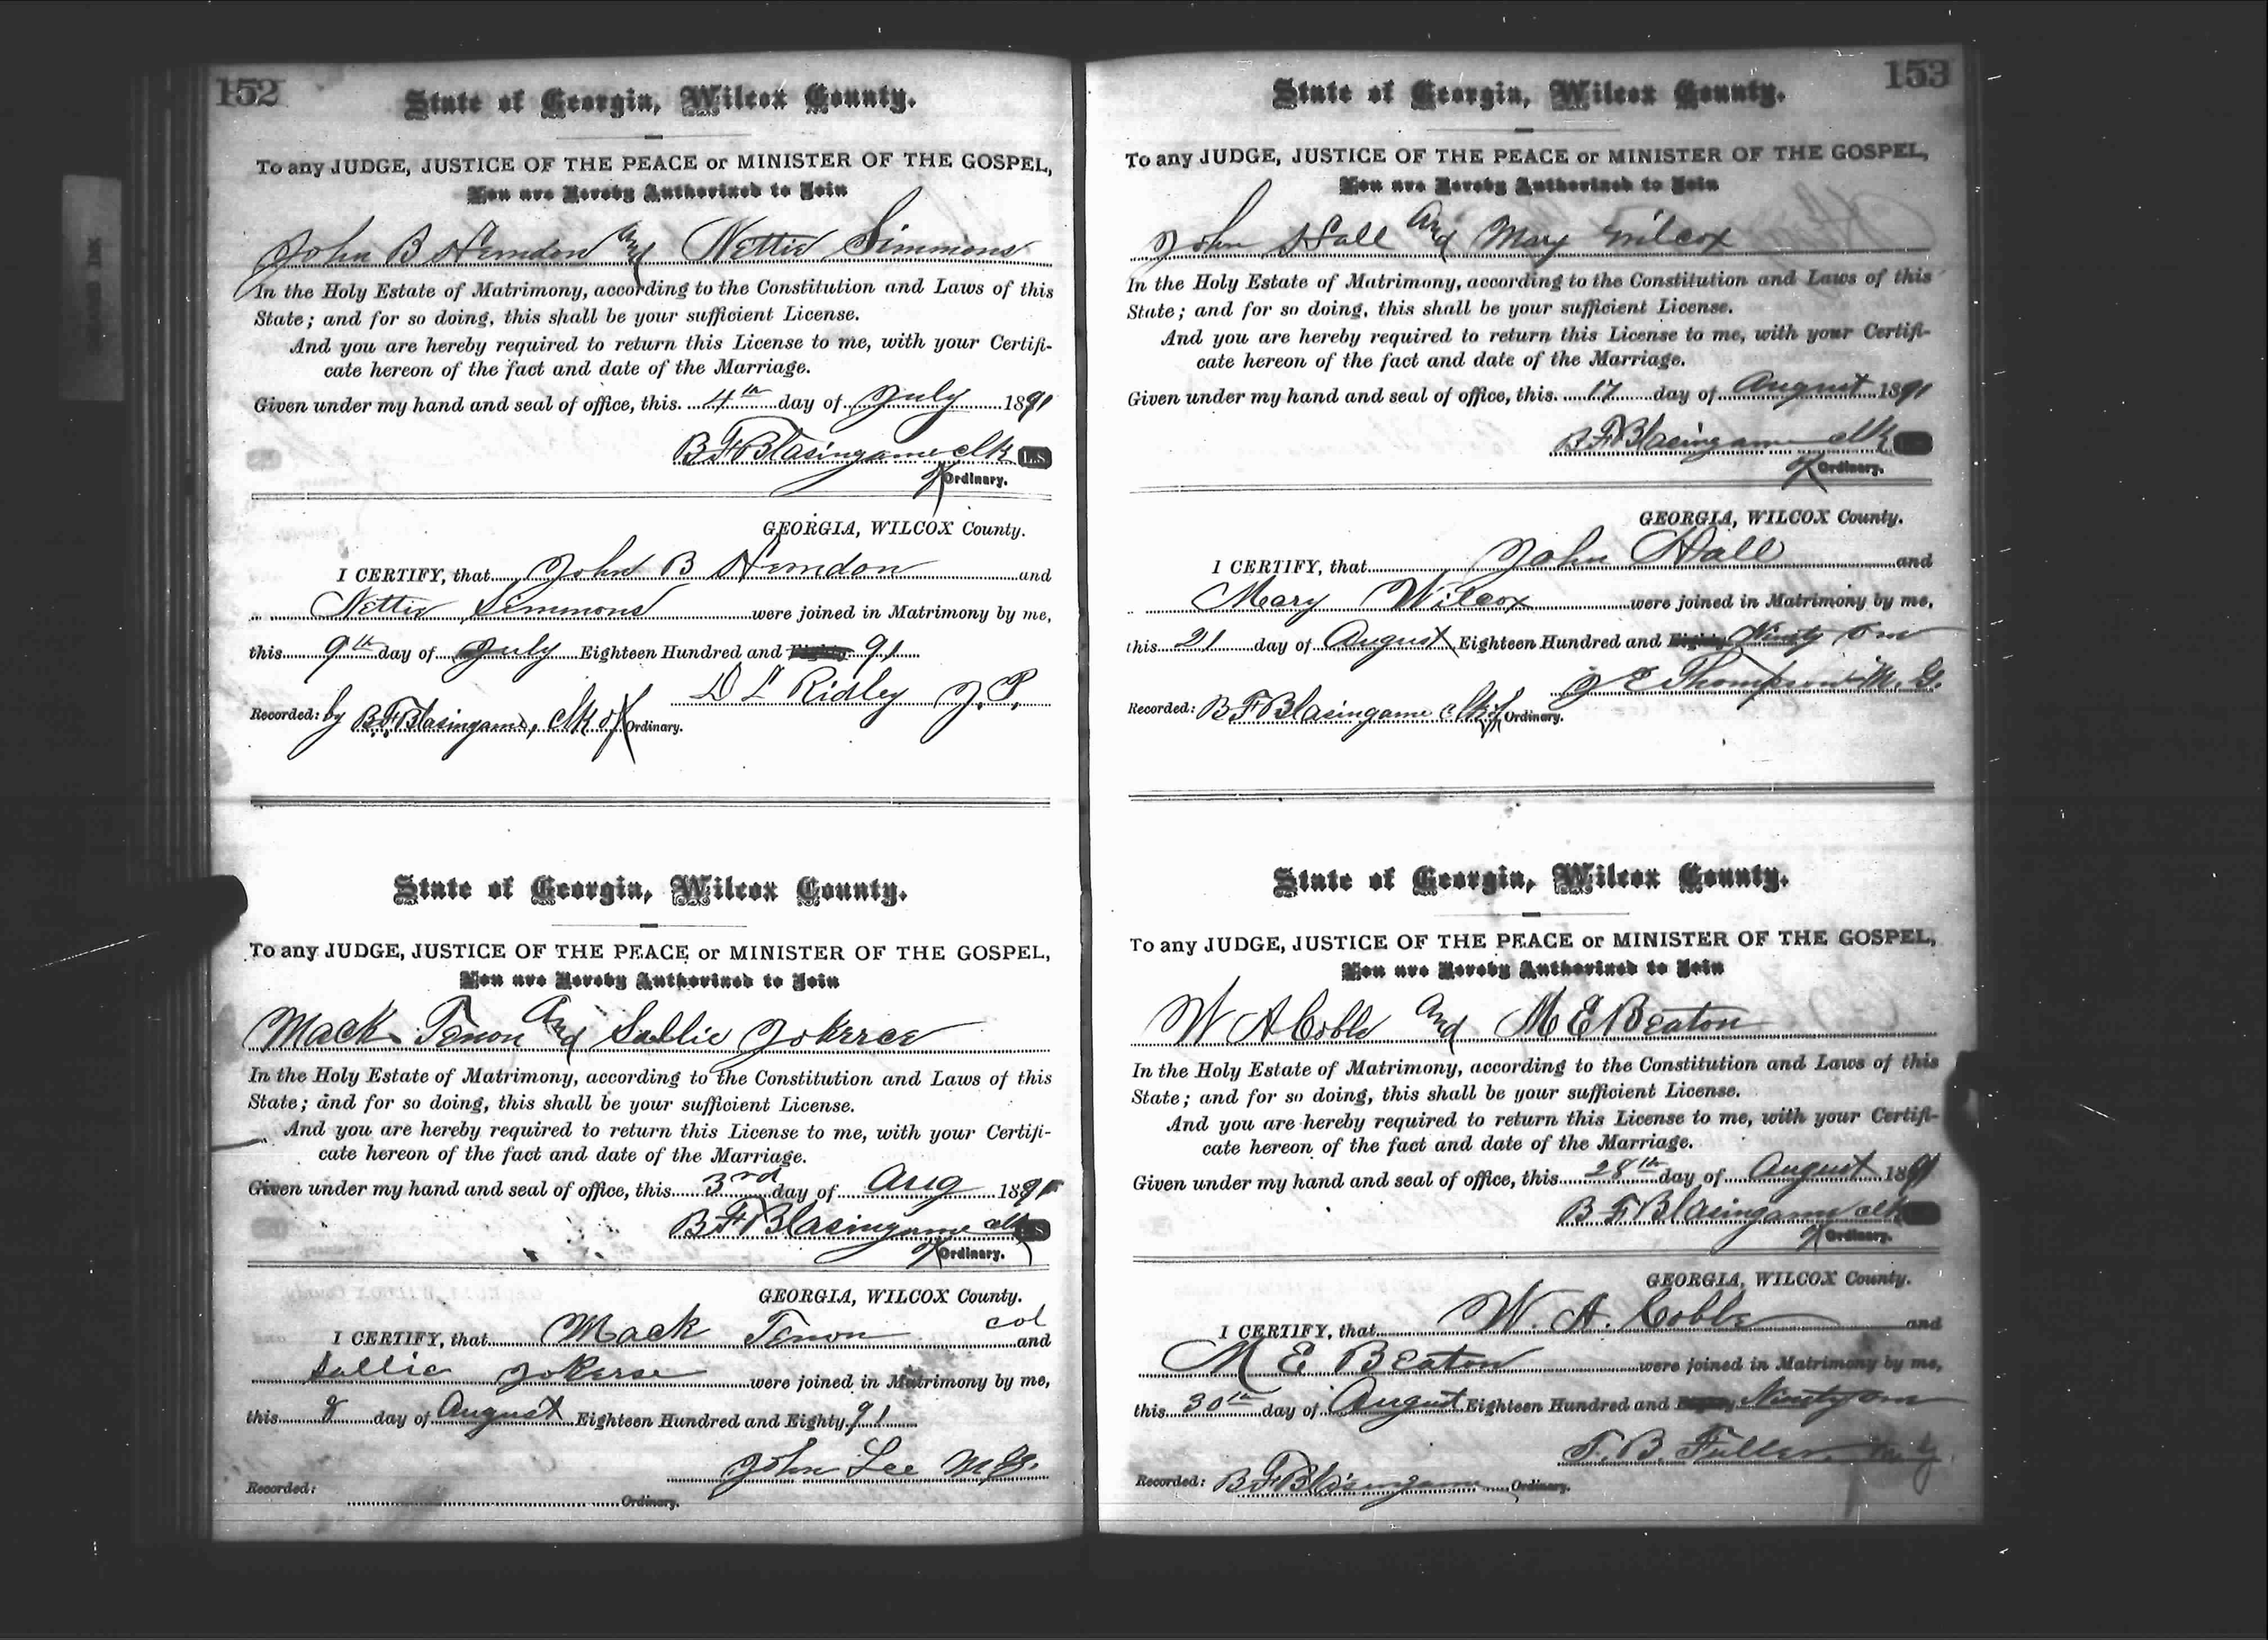 152
State of Georgia, Wilcox County.
To any JUDGE, JUSTICE OF THE PEACE or MINISTER OF THE GOSPEL,
You are Hereby Authorized to Join
John B Herndon and Nettie Simmons
In the Holy Estate of Matrimony, according to the Constitution and Laws of this
State; and for so doing, this shall be your sufficient License.
And you are hereby required to return this License to me, with your Certifi-
cate hereon of the fact and date of the Marriage.
Given under my hand and seal of office, this 4th day of July 1891
B F Blasingame clk L.S.
of Ordinary.
GEORGIA, WILCOX County.
I CERTIFY, that John B Herndon and
Nettie Simmons were joined in Matrimony by me,
this 9th day of July Eighteen Hundred and Eighty 91
D L Ridley J.P.
Recorded: by B.F. Blasingame, clk of Ordinary.
State of Georgia, Wilcox County.
To any JUDGE, JUSTICE OF THE PEACE or MINISTER OF THE GOSPEL,
You are Hereby Authorized to Join
Mack Tenon and Sallie Yokerce
In the Holy Estate of Matrimony, according to the Constitution and Laws of this
State; and for so doing, this shall be your sufficient License.
And you are hereby required to return this License to me, with your Certifi-
cate hereon of the fact and date of the Marriage.
Given under my hand and seal of office, this 3rd day of Aug 1891
B F Blasingame clk L.S
of Ordinary.
GEORGIA, WILCOX County.
I CERTIFY, that Mack Tenon col and
Sallie Yokerse were joined in Matrimony by me,
this 8 day of August Eighteen Hundred and Eighty 91
John Lee M.G.
Recorded: Ordinary.
153
State of Georgia, Wilcox County.
To any JUDGE, JUSTICE OF THE PEACE or MINISTER OF THE GOSPEL,
You are Hereby Authorized to Join
John Hall and Mary Wilcox
In the Holy Estate of Matrimony, according to the Constitution and Laws of this
State; and for so doing, this shall be your sufficient License.
And you are hereby required to return this License to me, with your Certifi-
cate hereon of the fact and date of the Marriage.
Given under my hand and seal of office, this 17 day of August 1891
B F Blasingame clk
of Ordinary.
GEORGIA, WILCOX County.
I CERTIFY, that John Hall and
Mary Wilcox were joined in Matrimony by me,
this 21 day of August Eighteen Hundred and Eighty Ninty one
J E Thompson M.G.
Recorded: B F Blasingame clk of Ordinary.
State of Georgia, Wilcox County.
To any JUDGE, JUSTICE OF THE PEACE or MINISTER OF THE GOSPEL,
You are Hereby Authorized to Join
W A Cobb and M E Beaton
In the Holy Estate of Matrimony, according to the Constitution and Laws of this
State; and for so doing, this shall be your sufficient License.
And you are hereby required to return this License to me, with your Certifi-
cate hereon of the fact and date of the Marriage.
Given under my hand and seal of office, this 28th day of August 1891
B F Blasingame clk
of Ordinary.
GEORGIA, WILCOX County.
I CERTIFY, that W. A. Cobb and
M E Beaton were joined in Matrimony by me,
this 30th day of August Eighteen Hundred and Eighty Ninty one
T. B. Fuller M.G.
Recorded: B F Blasingame Ordinary.